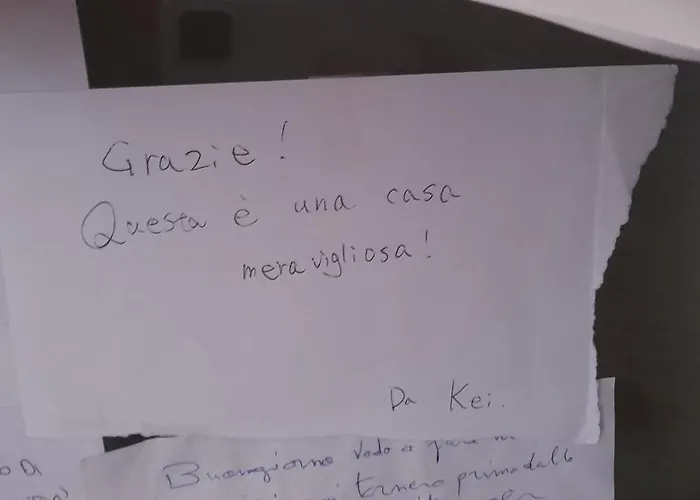 Grazie!
Questa è una casa
meravigliosa!
Da Kei.
Buongiorno Vado a
tornerò prima dalle